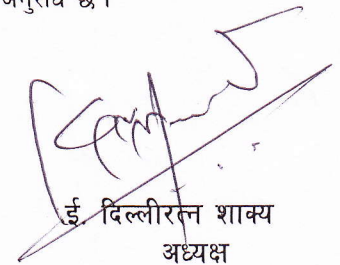 अनुरोध छ।
ई. दिल्लीरत्न शाक्य
अध्यक्ष